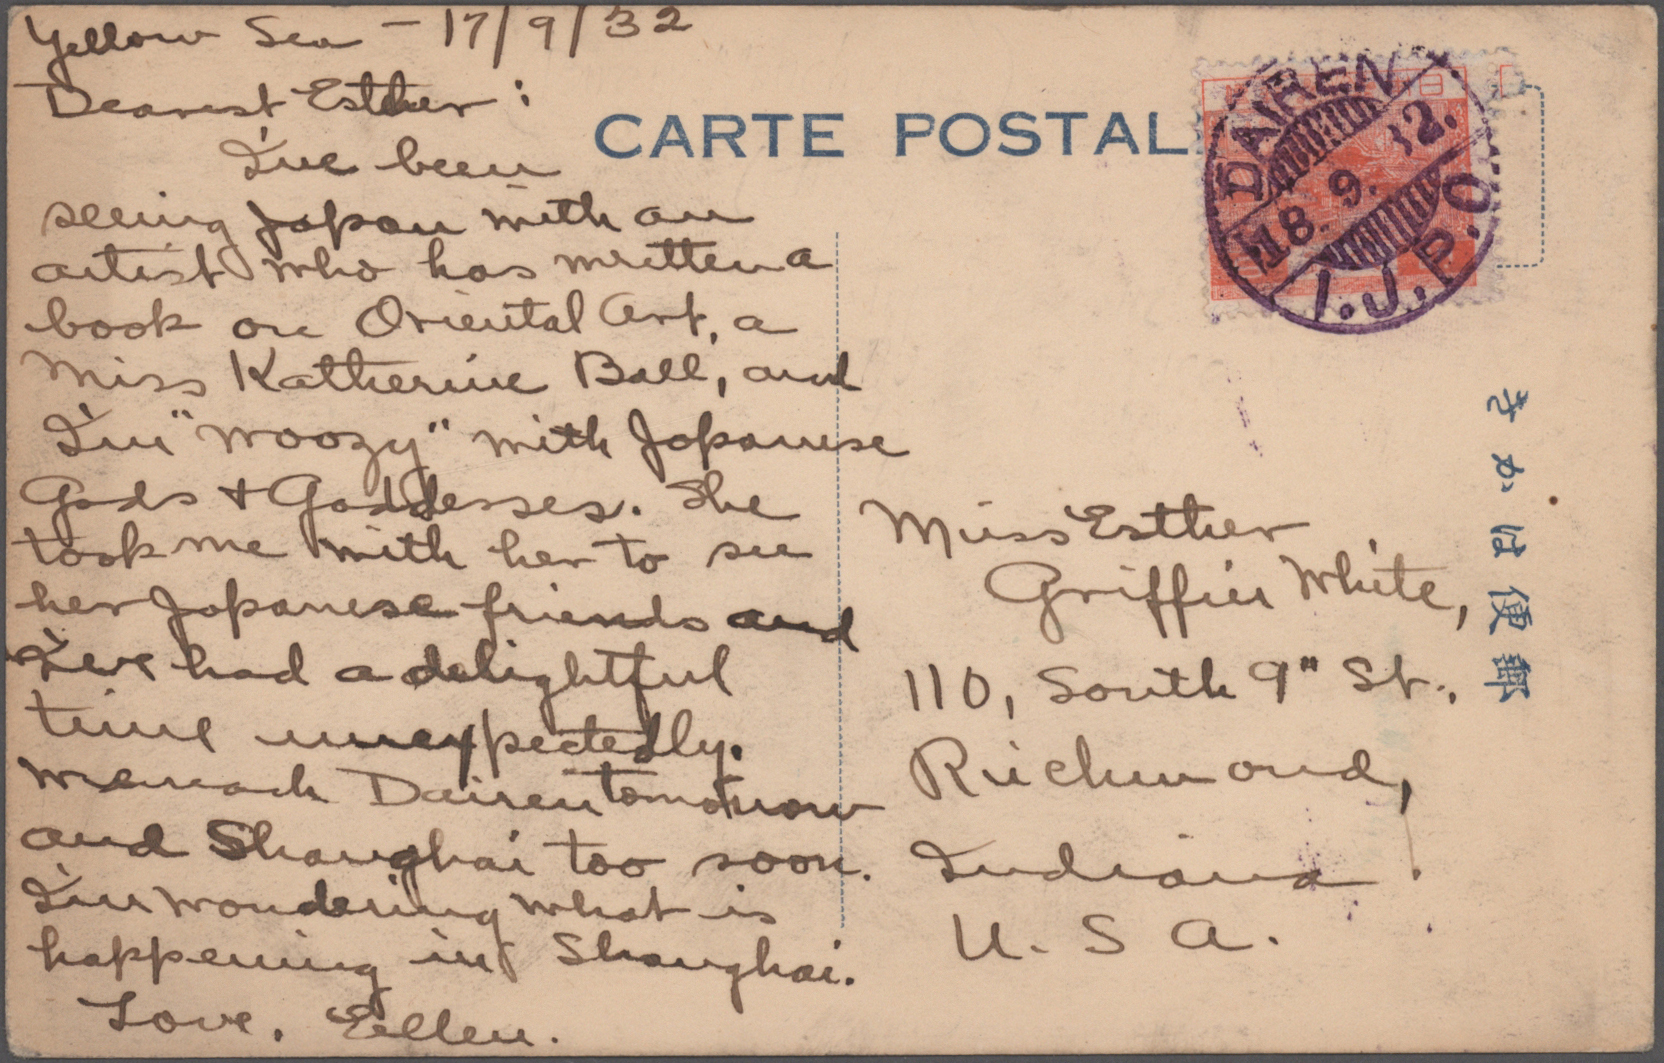 Yellow Sea - 17/9/32
Dearest Esther:
I've been
seeing Japan with an
artist who has written a
book on Oriental Art, a
Miss Katherine Ball, and
I'm "woozy" with Japanese
Gods + Goddesses. She
took me with her to see
her Japanese friends and
I've had a delightful
time unexpectedly.
We reach Dairen tomorrow
and Shanghai too soon.
I'm wondering what is
happening in Shanghai.
Love, Ellen.
CARTE POSTAL
DAIREN
18. 9. 32.
I.J.P.O.
きかは便郵
Miss Esther
Griffin White,
110, South 9" St.,
Richmond,
Indiana
U. S A.